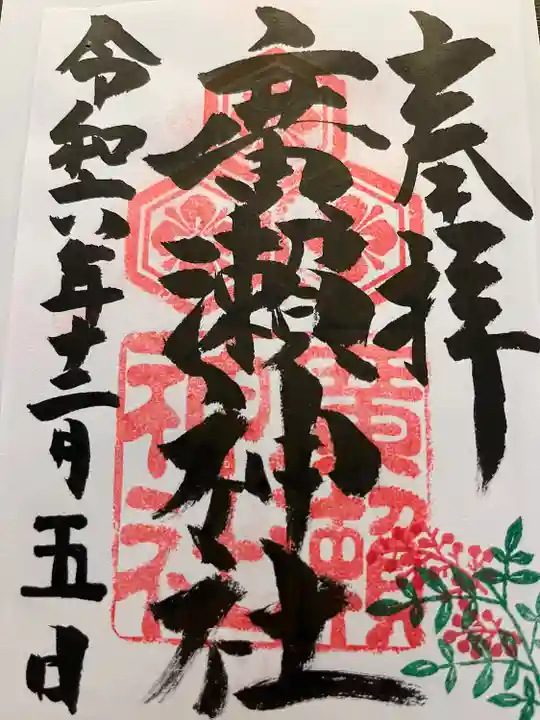 奉拝
廣瀬神社
令和六年十二月五日